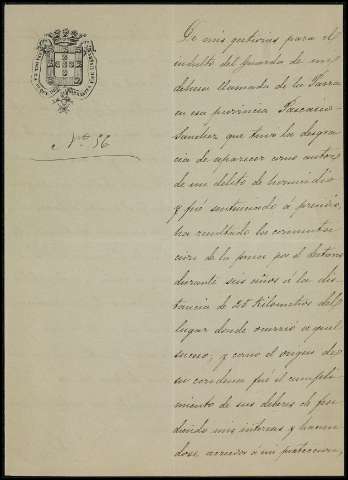 Nº 56
De mis gestiones para el
indulto del guarda de mi
dehesa llamada de la Parra
en esa provincia Pascasio
Sanchez, que tuvo la desgra
cia de aparecer como autor
de un delito de homicidio
y fué sentenciado a presidio,
ha resultado la conmuta
cion de la pena por el destierro
durante seis años á la dis
tancia de 25 Kilometros del
lugar donde ocurrió aquel
suceso; y como el origen de
su condena fué el cumpli
miento de sus deberes defen
diendo mis intereses y hacien
dose acreedor a mi proteccion,